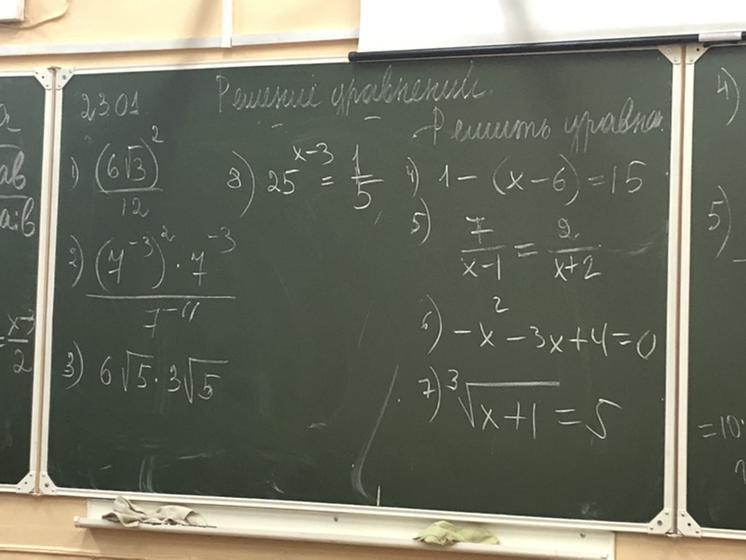 23.01
Решение уравнений.
Решить уравне
1) (6√3)² / 12
2) (7⁻³)² · 7⁻³ / 7⁻¹¹
3) 6√5 · 3√5
8) 25ˣ⁻³ = 1/5
4) 1 - (x - 6) = 15
5) 7/(x-1) = 2/(x+2)
6) -x² - 3x + 4 = 0
7) ³√(x+1) = 5
ab
a:b
= x-3 / 2
4)
5)
=10·